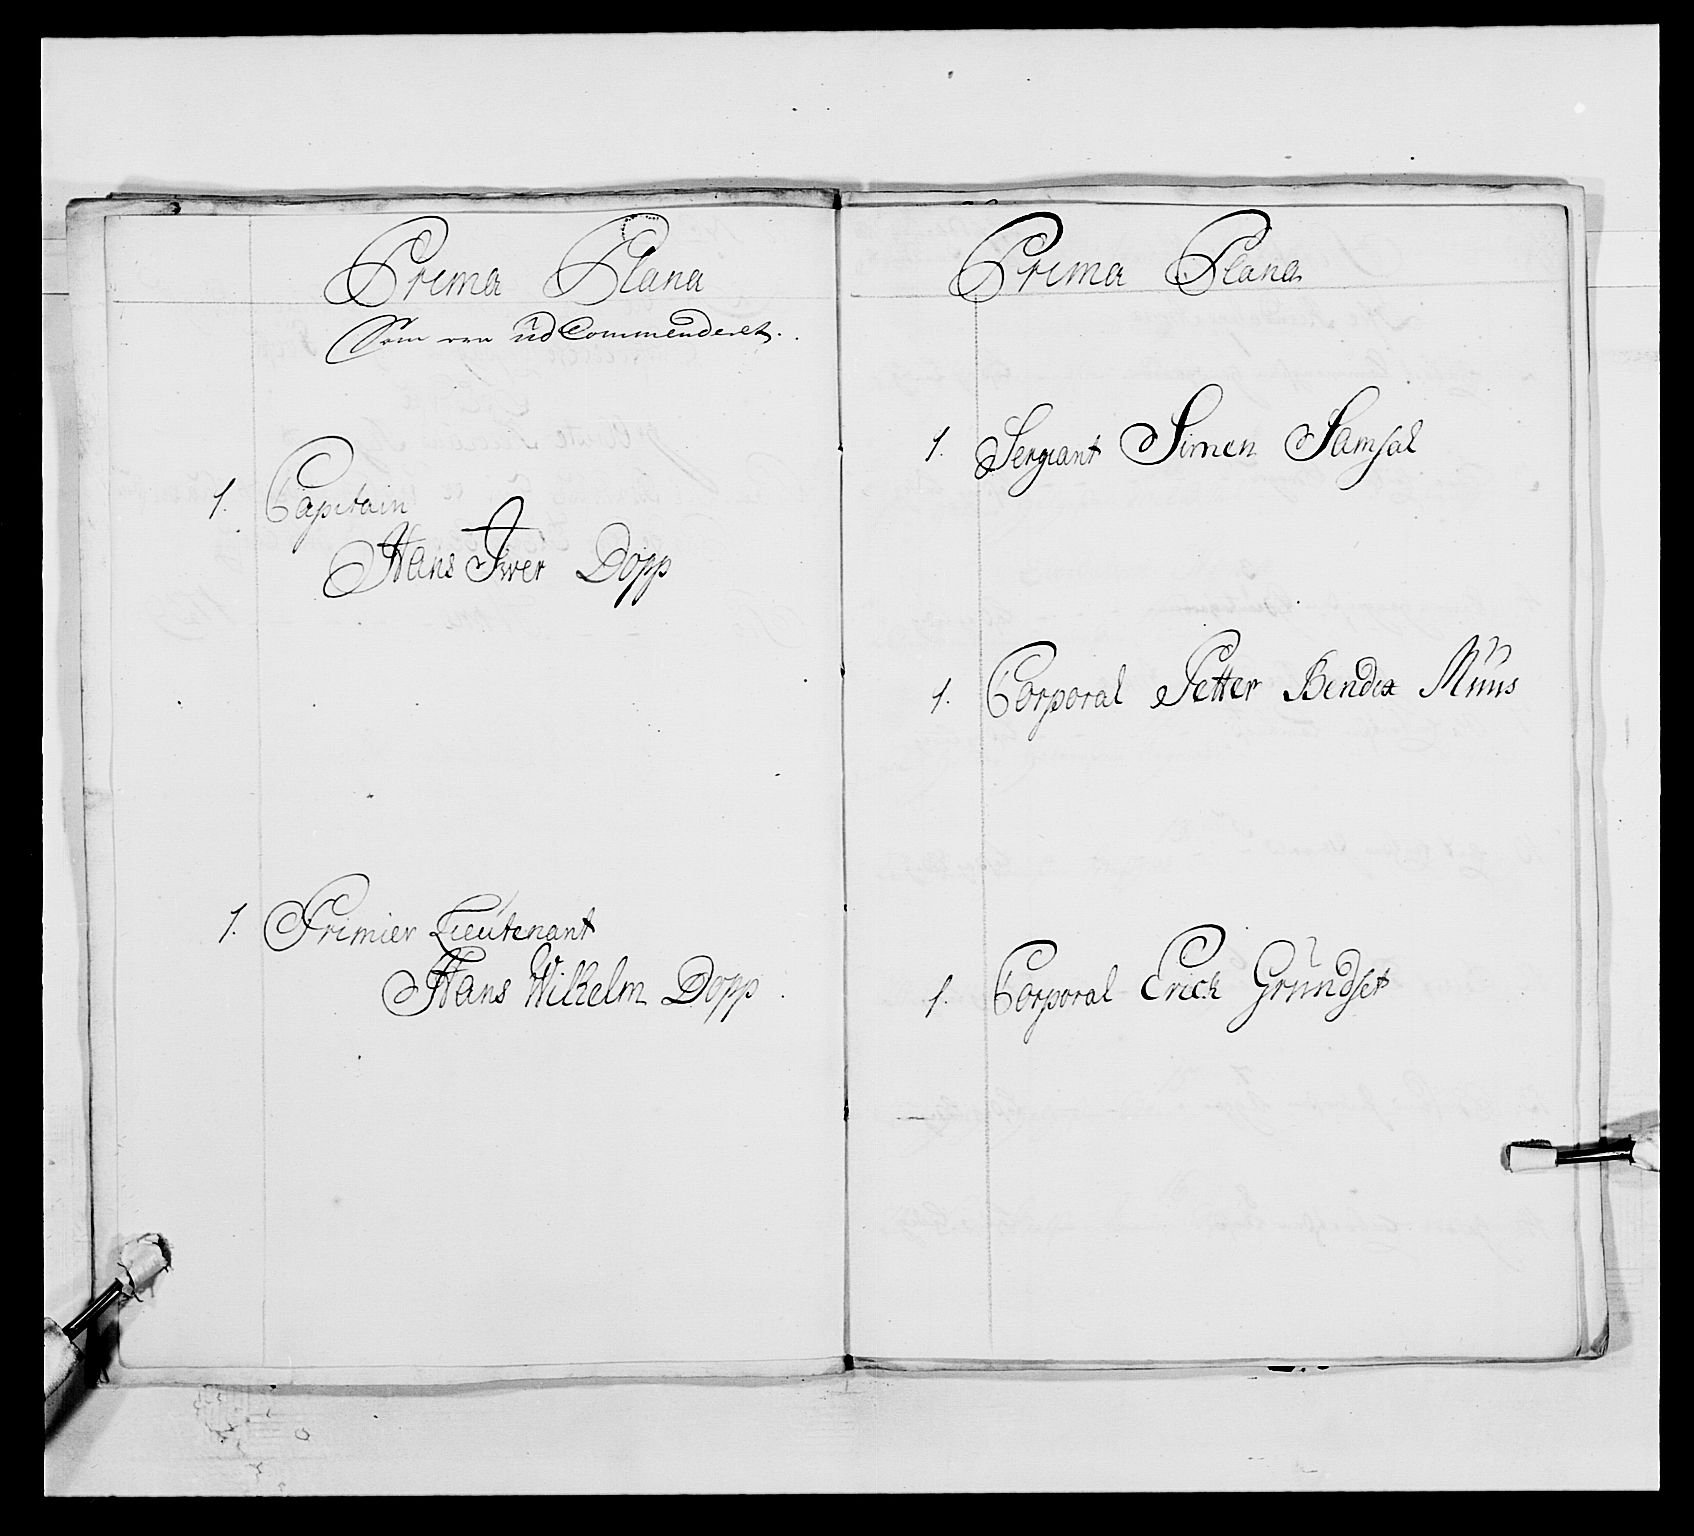 Prima Plana
Som var ud Commenderet.
1. Capitain
Hans Iwer Dopp
1. Primier Lieutenant
Hans Wilhelm Dopp
Prima Plana
1. Sergiant Simen Samsal
1. Corporal Petter Bendix Muus
1. Corporal Erich Grundset